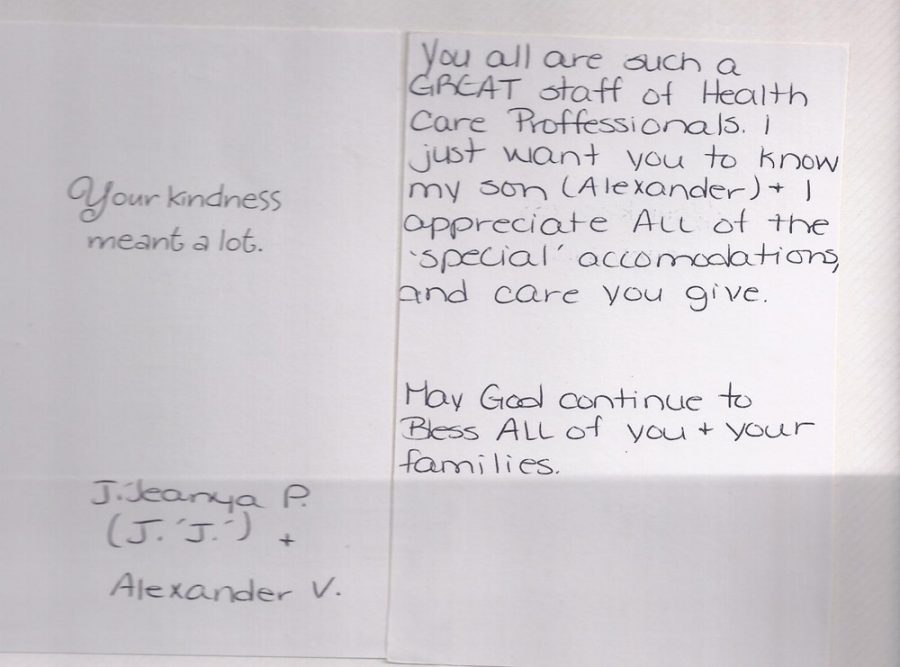 Your kindness
meant a lot.
J.'Jeanya P.
(J. 'J.') +
Alexander V.
You all are such a
GREAT staff of Health
Care Proffessionals. I
just want you to know
my son (Alexander) + I
appreciate ALL of the
'special' accomodations,
and care you give.
May God continue to
Bless ALL of you + your
families.